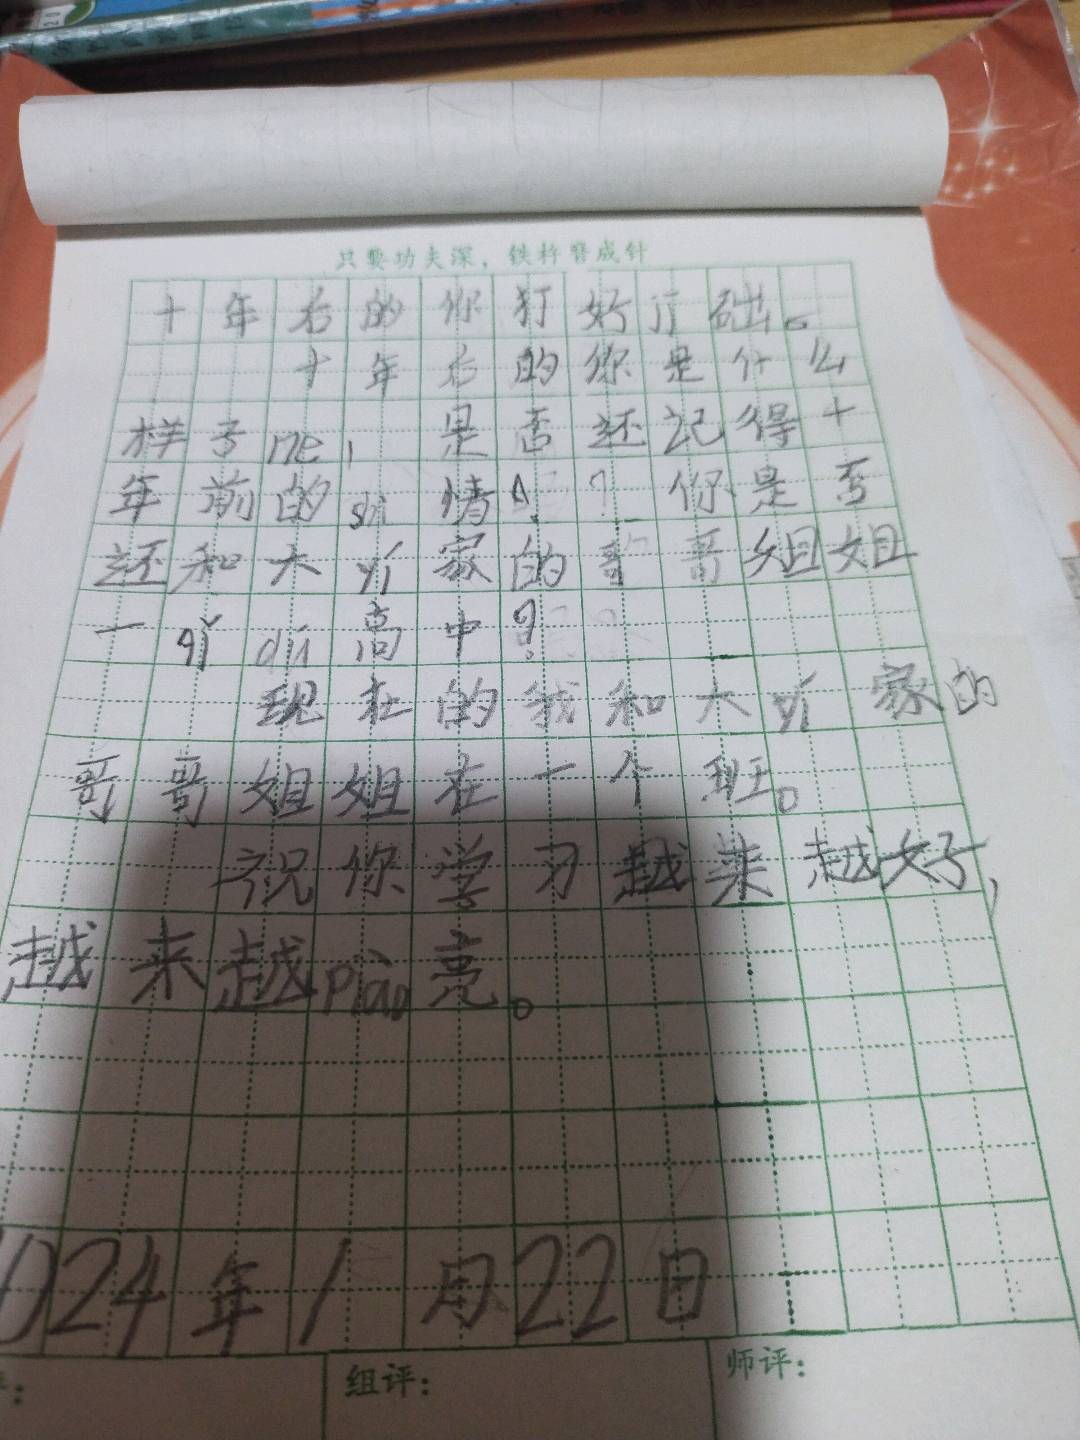 只要功夫深，铁杵磨成针
十年后的你打好了础。
十年后的你是什么
样子ne，是否还记得十
年前的sì情？你是否
还和大yí家的哥哥姐姐
一qǐ dú高中？
现在的我和大yí家的
哥哥姐姐在一个班。
祝你学习越来越好，
越来越piào亮。
2024年1月22日
组评：
师评：